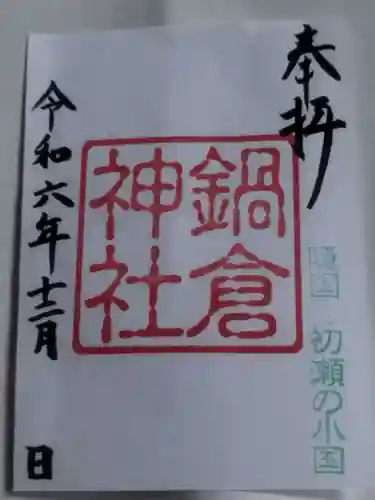 奉拝
鍋倉
神社
初瀬の小国
令和六年十二月
日